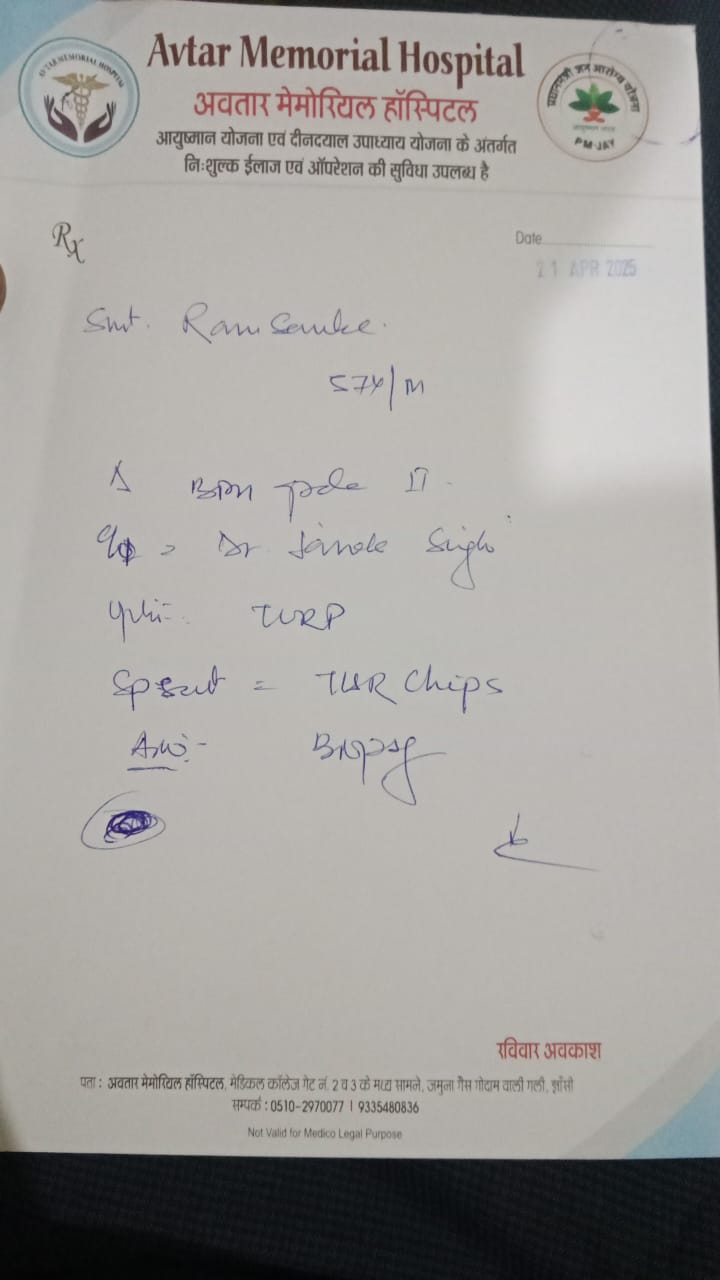 AVTAR MEMORIAL HOSPITAL
Avtar Memorial Hospital
अवतार मेमोरियल हॉस्पिटल
आयुष्मान योजना एवं दीनदयाल उपाध्याय योजना के अंतर्गत
निःशुल्क ईलाज एवं ऑपरेशन की सुविधा उपलब्ध है
प्रधानमंत्री जन आरोग्य योजना
PM-JAY
Rx
Date
21 APR 2025
Smt.
57y/M
II
Dr Singh
TURP
= TUR Chips
Biopsy
रविवार अवकाश
पता : अवतार मेमोरियल हॉस्पिटल, मेडिकल कॉलेज गेट नं. 2 व 3 के मध्य सामने, जमुना गैस गोदाम वाली गली, झाँसी
सम्पर्क : 0510-2970077 | 9335480836
Not Valid for Medico Legal Purpose